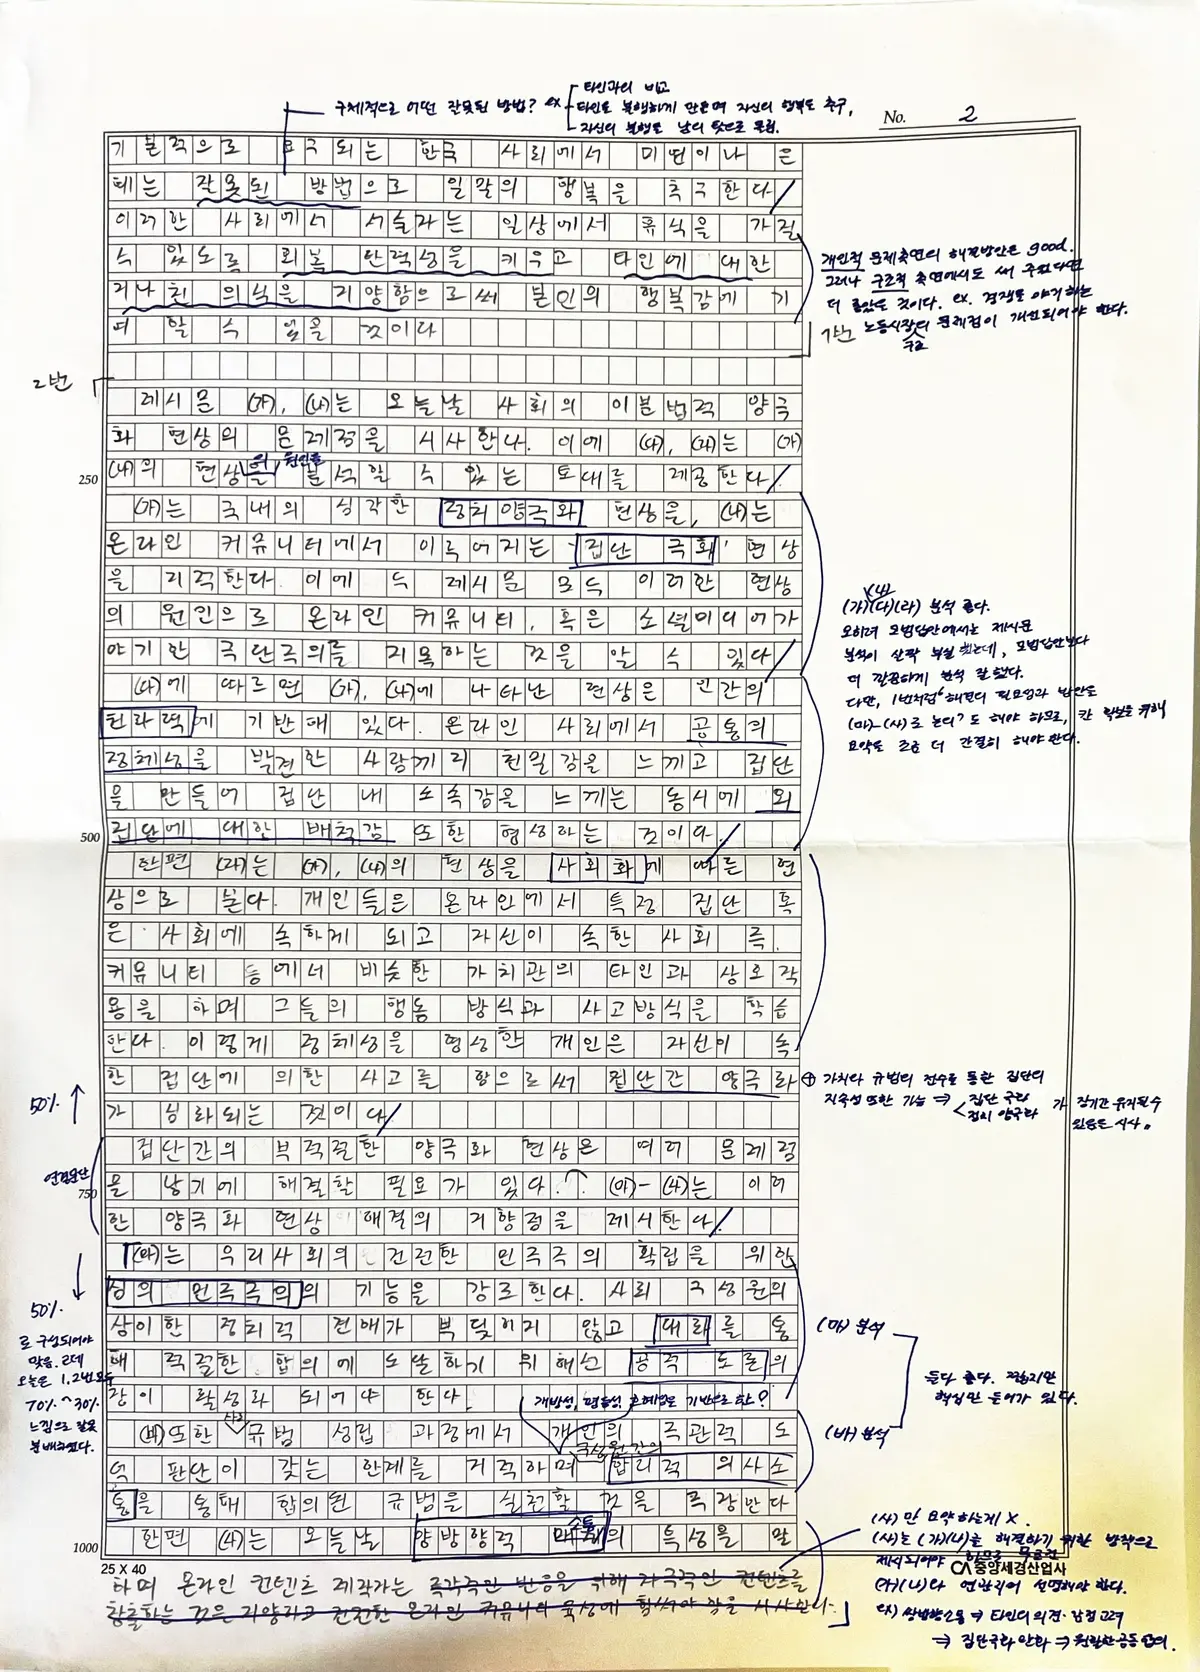 구체적으로 어떤 잘못된 방법? ex
타인과의 비교
타인을 불행하게 만들며 자신의 행복을 추구,
자신의 불행을 남의 탓으로 돌림.
No. 2
기본적으로 요구되는 한국 사회에서 미떤이나 은
테는 잘못된 방법으로 일말의 행복을 추구한다
이러한 사회에서 서술자는 일상에서 휴식을 가질
수 있도록 회복 탄력성을 키우고 타인에 대한
지나친 의식을 지양함으로써 본인의 행복감에 기
여 할 수 있을 것이다
개인적 문제측면의 해결방안은 good.
그러나 구조적 측면에서도 써 주었다면
더 좋았을 것이다. ex. 경쟁을 야기하는
노동시장의 구조 문제점이 개선되어야 한다.
1번
2번
제시문 (가), (나)는 오늘날 사회의 이분법적 양극
화 현상의 문제점을 시사한다. 이에 (다), (라)는 (가)
(나)의 현상을의 원인을 분석할 수 있는 토대를 제공한다
250
(가)는 국내의 심각한 정치 양극화 현상을, (나)는
온라인 커뮤니티에서 이루어지는 '집단 극화' 현상
을 지적한다. 이에 두 제시문 모두 이러한 현상
의 원인으로 온라인 커뮤니티, 혹은 소셜미디어가
야기한 극단주의를 지목하는 것을 알 수 있다
(가)(나)(다)(라) 분석 좋다.
오히려 모범답안에서는 제시문
분석이 살짝 부실했는데, 모범답안보다
더 깔끔하게 분석 잘 했다.
다만, 1번처럼 '해결의 필요성과 방안을
(마)-(사)로 논의'도 해야 하므로, 칸 확보를 위해
요약을 조금 더 간결히 해야 한다.
(다)에 따르면 (가), (나)에 나타난 현상은 인간의
친화력에 기반해 있다. 온라인 사회에서 공통의
정체성을 발견한 사람끼리 친밀감을 느끼고 집단
을 만들어 집단 내 소속감을 느끼는 동시에 외
집단에 대한 배척감 또한 형성하는 것이다.
500
한편 (라)는 (가), (나)의 현상을 사회화에 따른 현
상으로 본다. 개인들은 온라인에서 특정 집단 혹
은 사회에 속하게 되고 자신이 속한 사회 즉,
커뮤니티 등에서 비슷한 가치관의 타인과 상호작
용을 하며 그들의 행동 방식과 사고방식을 학습
한다. 이렇게 정체성을 형성한 개인은 자신이 속
한 집단에 의한 사고를 함으로써 집단간 양극화
가 심화되는 것이다
⊕ 가치나 규범의 전수를 통한 집단의
지속성 또한 가능 ⇒ 집단 극화
정치 양극화
가 장기간 유지될 수
있음을 시사.
50% ↑
연결문단
집단간의 부적절한 양극화 현상은 여러 문제점
을 낳기에 해결할 필요가 있다. (마)-(사)는 이러
한 양극화 현상 해결의 지향점을 제시한다
750
↓ 50%.
로 구성되어야
맞음. 근데
오늘은 1,2번 모두
70%~30%
느낌으로 잘못
분배하였다.
(마)는 우리사회의 건전한 민주주의 확립을 위한
심의 민주주의의 기능을 강조한다. 사회 구성원의
상이한 정치적 견해가 부딪히지 않고 대화를 통
해 적절한 합의에 도달하기 위해선 공적 토론의
장이 활성화 되어야 한다
(마) 분석
개방성, 평등성, 호혜성을 기반으로 한?
(바) 또한 사회 규범 성립 과정에서 개인의 주관적 도
덕 판단이 갖는 한계를 지적하며 구성원 간의 합리적 의사소
통을 통해 합의된 규범을 실천할 것을 주장한다
(바) 분석
둘다 좋다. 적합하지만
핵심만 들어가 있다.
한편 (사)는 오늘날 양방향적 소통 매체의 특성을 말
1000
25 X 40
CA 중앙세경산업사
하며 온라인 컨텐츠 제작가는 즉각적인 반응을 위해 자극적인 컨텐츠를
창출하는 것을 지양하고 건전한 온라인 커뮤니티 육성에 힘써야 함을 시사한다.
(사) 만 요약하는게 X.
(사)는 (가)(나)를 해결하기 위한 방책으로
제시되어야 하므로 무조건
(가)(나)와 연관지어 설명해야 한다.
ex) 쌍방향소통 ⇒ 타인의 의견·감정 고려
⇒ 집단극화 완화 ⇒ 원활한 공동합의.